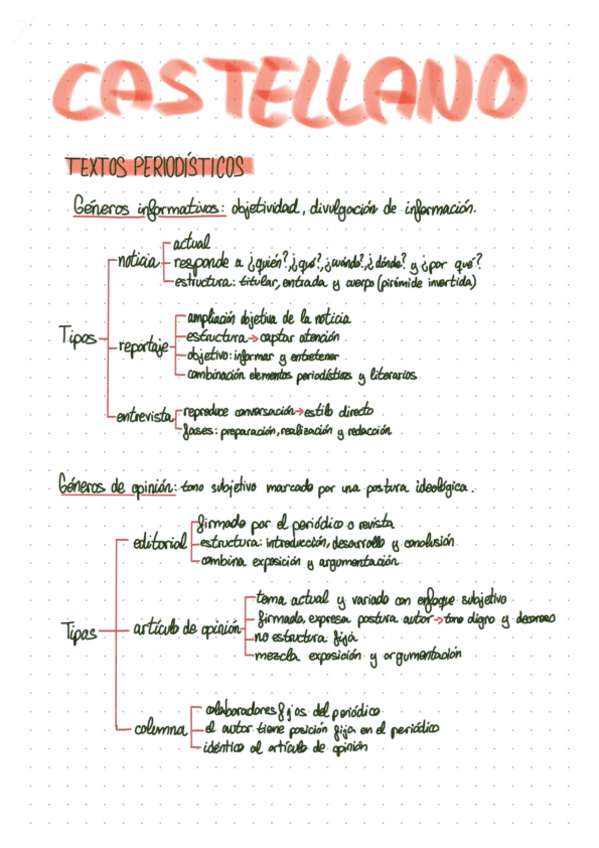 CASTELLANO
TEXTOS PERIODÍSTICOS
Géneros informativos: objetividad, divulgación de información.
actual
noticia
responde a ¿quién?, ¿qué?, ¿cuándo?, ¿dónde? y ¿por qué?
estructura: titular, entrada y cuerpo (pirámide invertida)
ampliación objetiva de la noticia
Tipos
estructura → captar atención
reportaje
objetivo: informar y entretener
combinación elementos periodísticos y literarios
entrevista
reproduce conversación → estilo directo
fases: preparación, realización y redacción
Géneros de opinión: tono subjetivo marcado por una postura ideológica.
firmado por el periódico o revista
editorial
estructura: introducción, desarrollo y conclusión
combina exposición y argumentación
tema actual y variado con enfoque subjetivo
firmado, expresa postura autor → tono digno y decoroso
Tipos
artículo de opinión
no estructura fija
mezcla exposición y argumentación
colaboradores fijos del periódico
columna
el autor tiene posición fija en el periódico
idéntico al artículo de opinión